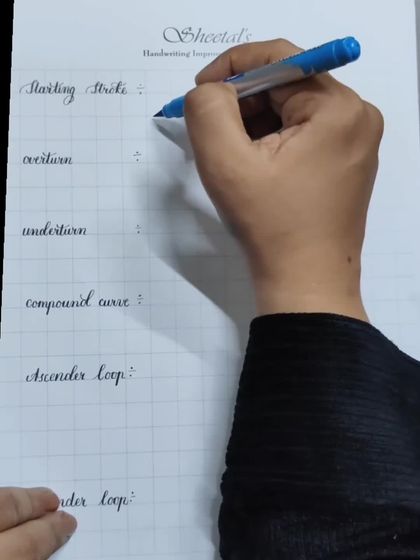 Sheetal's
Handwriting
Starting Stroke ÷
overturn ÷
underturn ÷
compound curve ÷
Ascender loop ÷
loop ÷